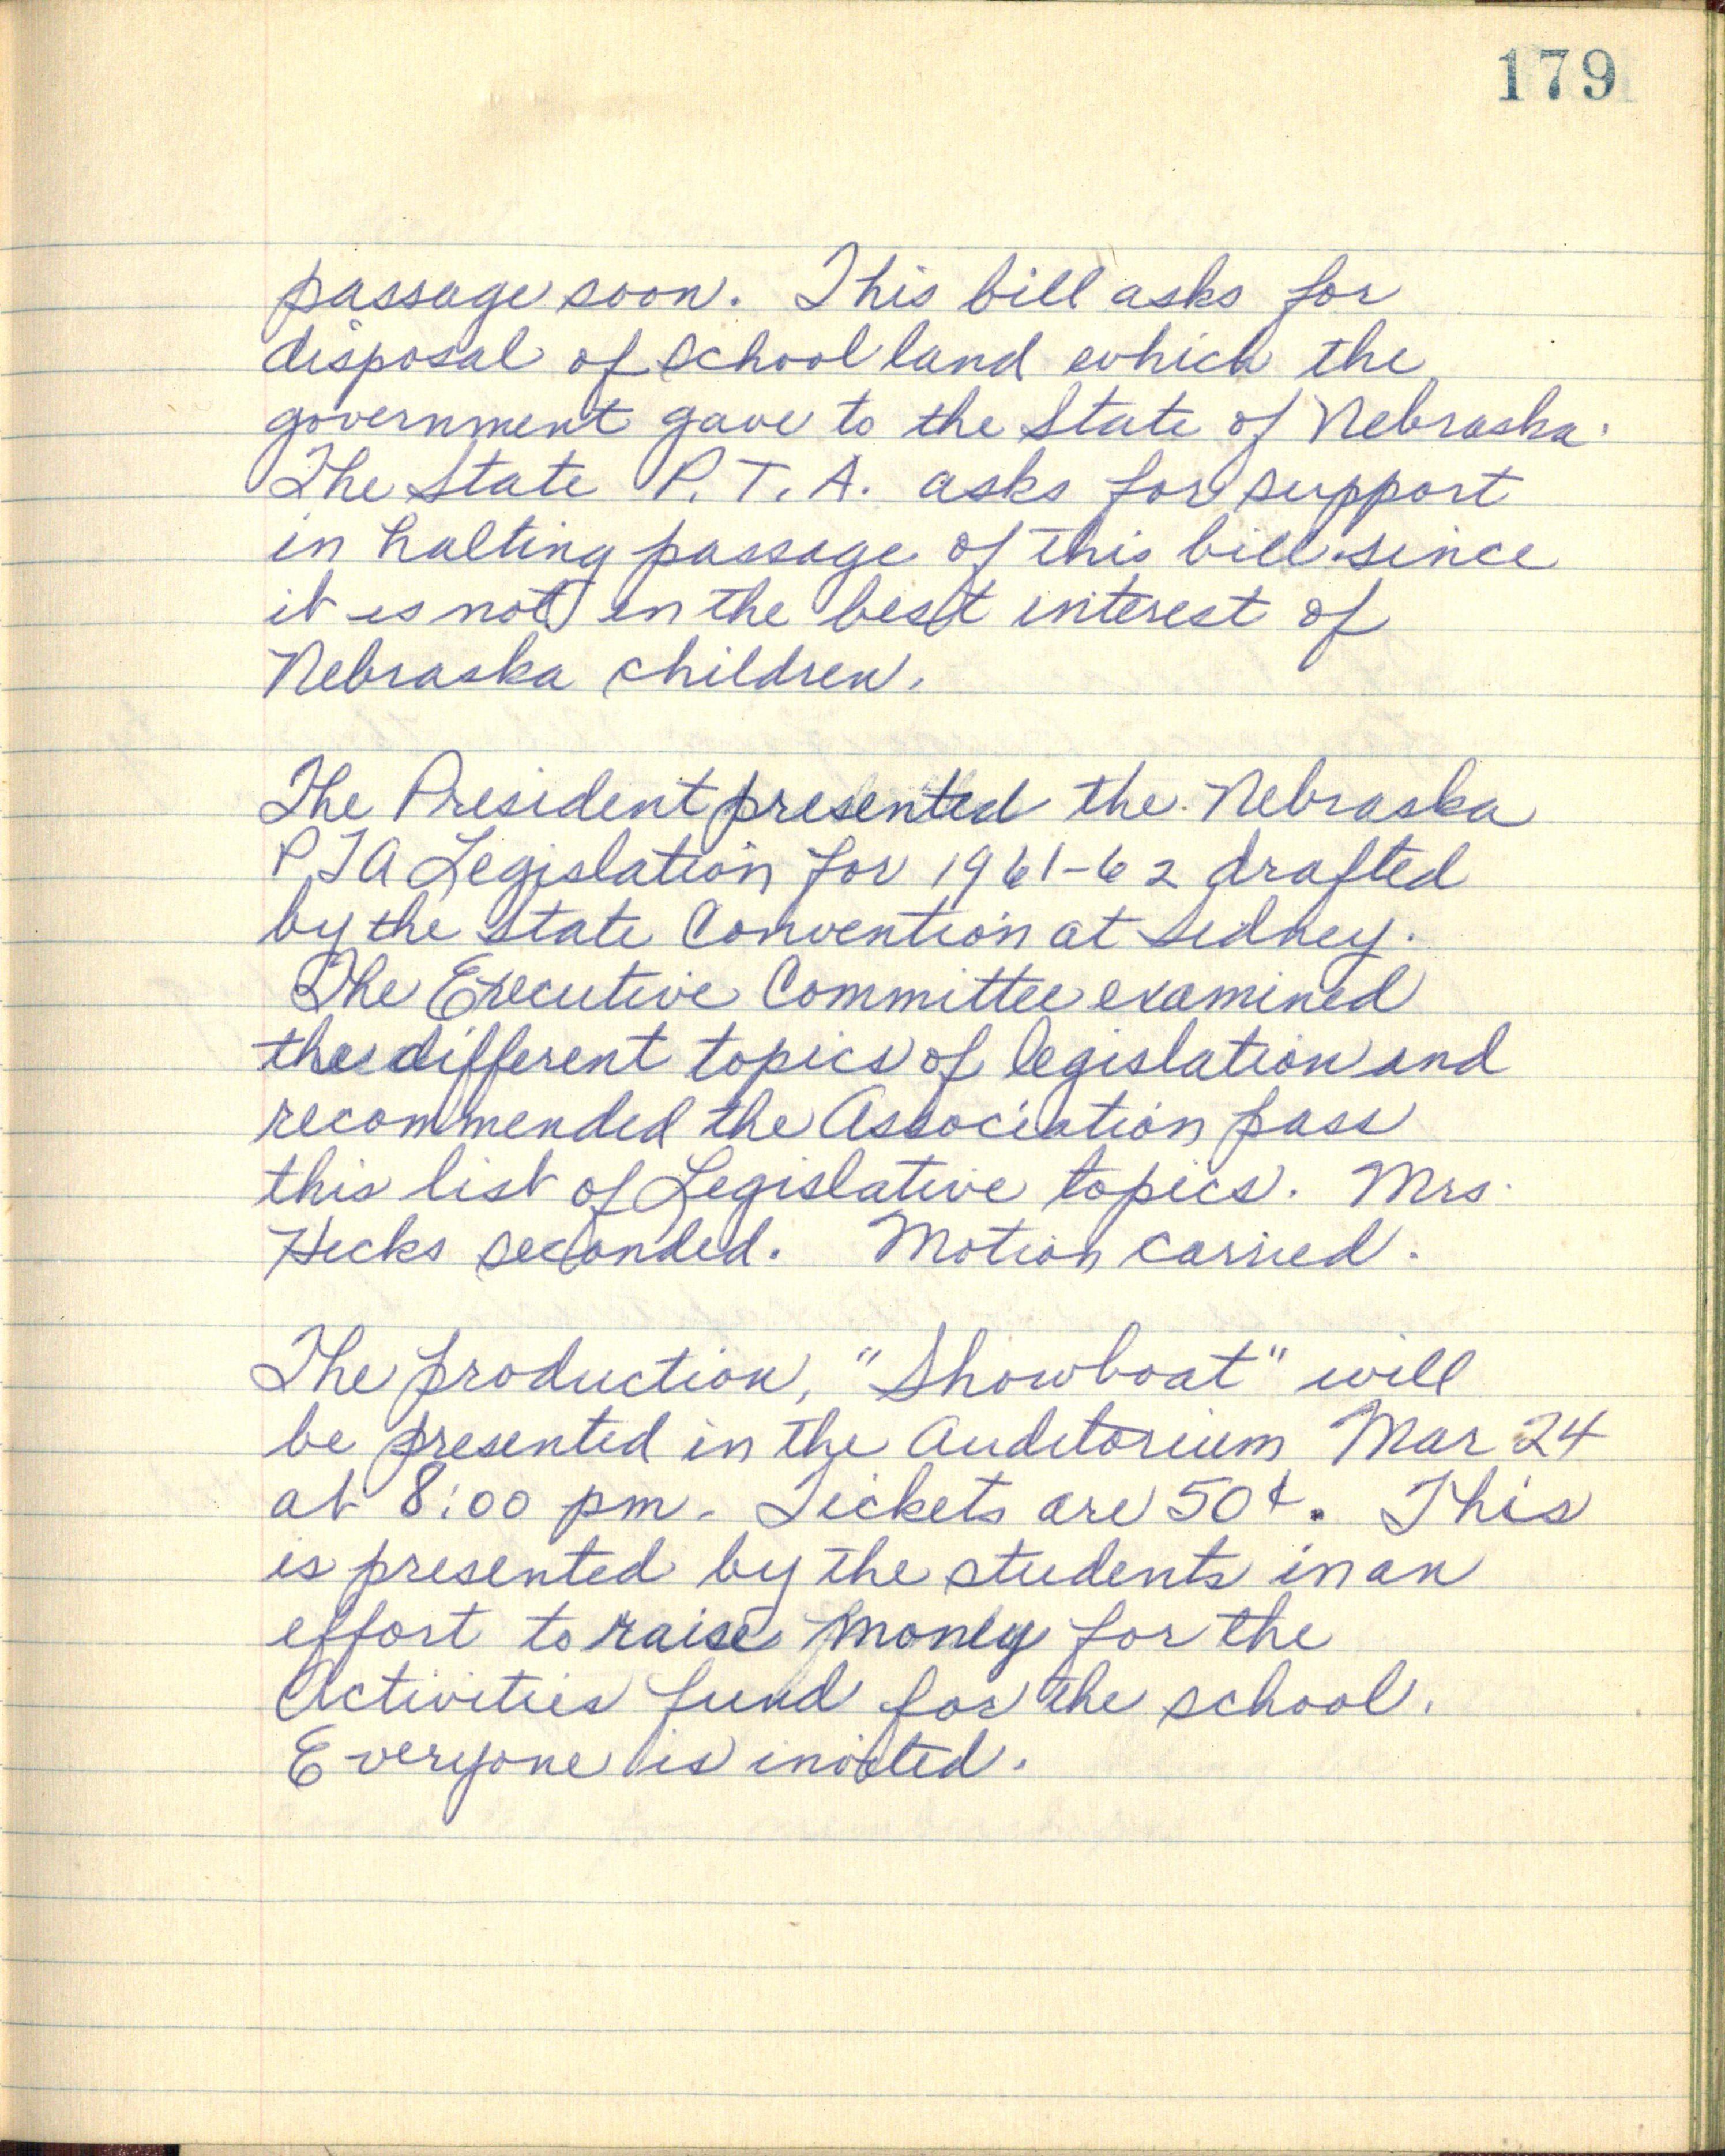 179
passage soon. This bill asks for
disposal of school land which the
government gave to the State of Nebraska.
The State P.T.A. asks for support
in halting passage of this bill since
it is not in the best interest of
Nebraska children.
The President presented the Nebraska
PTA Legislation for 1961-62 drafted
by the State Convention at Sidney.
The Executive Committee examined
the different topics of legislation and
recommended the Association pass
this list of Legislative topics. Mrs.
Hicks seconded. Motion carried.
The production, "Showboat" will
be presented in the Auditorium Mar 24
at 8:00 pm. Tickets are 50¢. This
is presented by the students in an
effort to raise money for the
Activities fund for the school.
Everyone is invited.